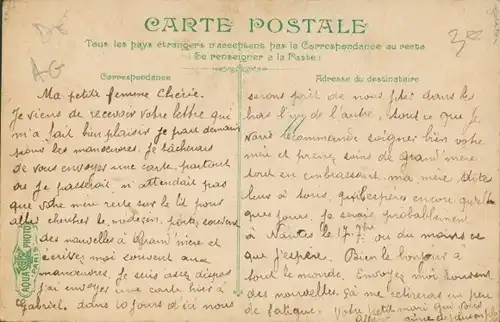 De
AG
3,50
CARTE POSTALE
Tous les pays étrangers n'acceptent pas la Correspondance au recto
(Se renseigner à la Poste)
Correspondance
Adresse du destinataire
Ma petite femme Chérie.
Je viens de recevoir votre lettre qui
m'a fait bien plaisir Je part demain
pour les manœuvres. Je tâcherai
de vous envoyer une carte, partout
où Je passerai, n'attendait pas
que votre mère reste sur le lit pour
aller chercher le médecin, portez souvent
des nouvelles à Grand'mère et
écrivez moi souvent aux
manœuvres. Je suis assez dispos
J'ai envoyer une carte hier à
Gabriel. dans 10 jours d'ici nous
serons prêt de nous Jeter dans les
bras l'un de l'autre, tous ce que Je
vous recommande soigner bien votre
mère et prenez soins de Grand'mère
tout en embrassant ma mère
leur à tous, qu'espérer encore quelque
ques jours. Je serais probablement
à Nantes le 17 7bre ou du moins ce
que J'espère. Bien le bonjour à
tout le monde. Envoyez moi souvent
des nouvelles Cà me retirera un peu
de fatigue. Votre petit mari qui
PHOTO
PARIS